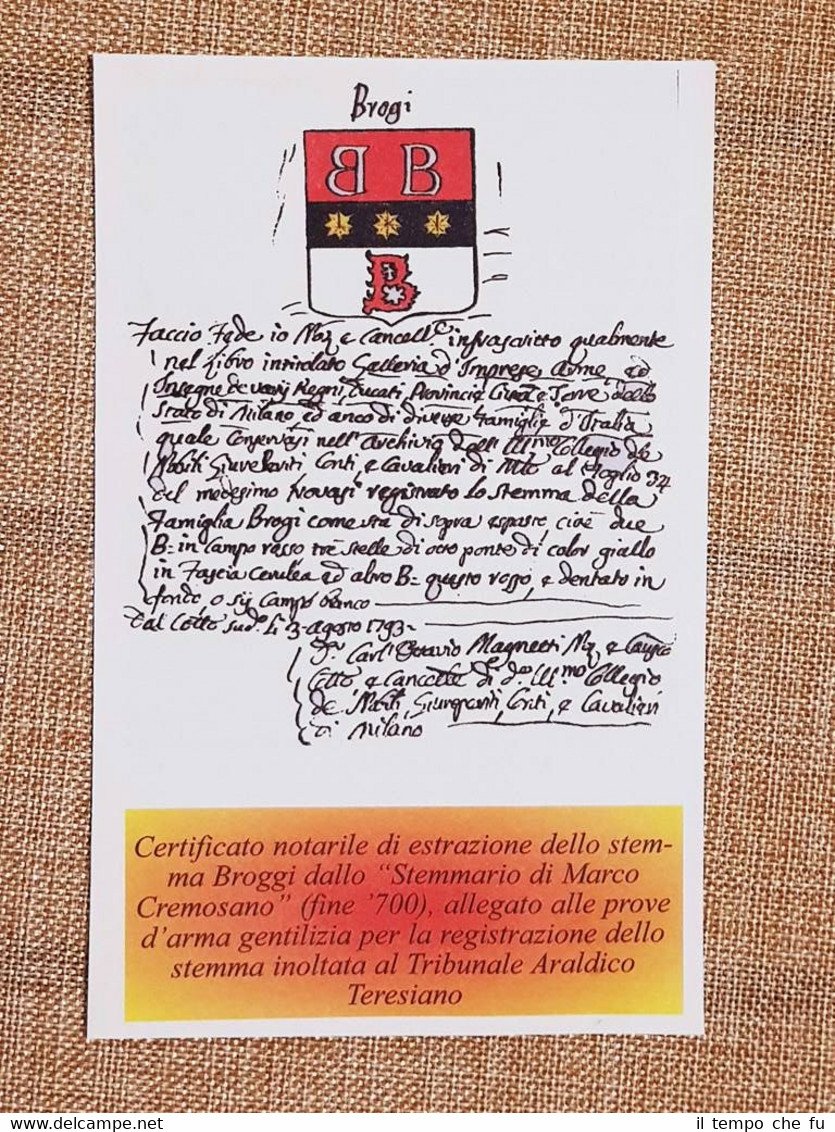 Brogi
B B
B
Faccio Fede io Nor e Cancell.e infrascritto qualmente
nel Libro intitolato Galleria d'Imprese Arme ed
Insegne de varij Regni, Ducati, Provincie Città e Terre dello
Stato di Milano ed anco di diverse Famiglie d'Italia
quale Conservasi nell'Archivio dell' Ill.mo Collegio de
Nobili Giureperiti Conti, e Cavalieri di Mlo al Foglio 34
del medesimo trovasi registrato lo stemma della
Famiglia Brogi come sta di sopra espasto, cioè due
B= in Campo rosso tre stelle di otto ponte di color giallo
in Fascia Cerulea ed altro B= questo rosso, e dentato in
fondo, o sij Campo bianco
Dal Cetto Sud.o Li 3 Agosto 1793
Carl' Ottavio Magnetti Nr, e
e Cancelle di d.o Ill.mo Collegio
de Nobili, Giureperiti, Conti, e Cavalieri
di Milano
Certificato notarile di estrazione dello stem-
ma Broggi dallo “Stemmario di Marco
Cremosano” (fine ’700), allegato alle prove
d’arma gentilizia per la registrazione dello
stemma inoltata al Tribunale Araldico
Teresiano
DELCAMPE.NET
il tempo che fu